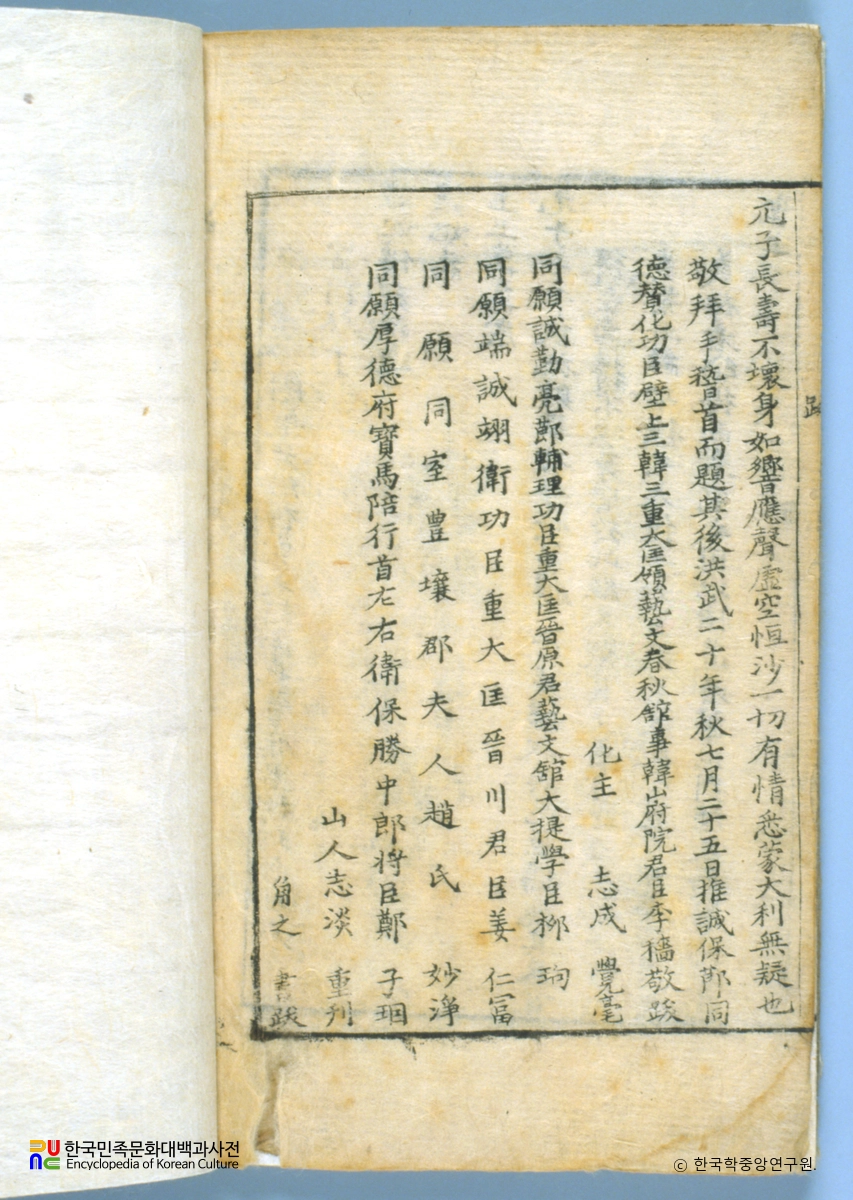 元子長壽不壞身如響應聲虛空恒沙一切有情悉蒙大利無疑也
敬拜手稽首而題其後洪武二十年秋七月二十五日推誠保節同
德贊化功臣壁上三韓三重大匡領藝文春秋館事韓山府院君臣李穡敬跋
化主 志成 覺毫
同願誠勤亮節輔理功臣重大匡晉原君藝文館大提學臣柳 珣
同願端誠翊衛功臣重大匡晉川君臣姜 仁富
同願同室豊壤郡夫人趙氏 妙淨
同願厚德府寶馬陪行首左右衛保勝中郎將臣鄭 子
山人志淡 重刊
角之 書跋
跋
한국민족문화대백과사전
Encyclopedia of Korean Culture
© 한국학중앙연구원.